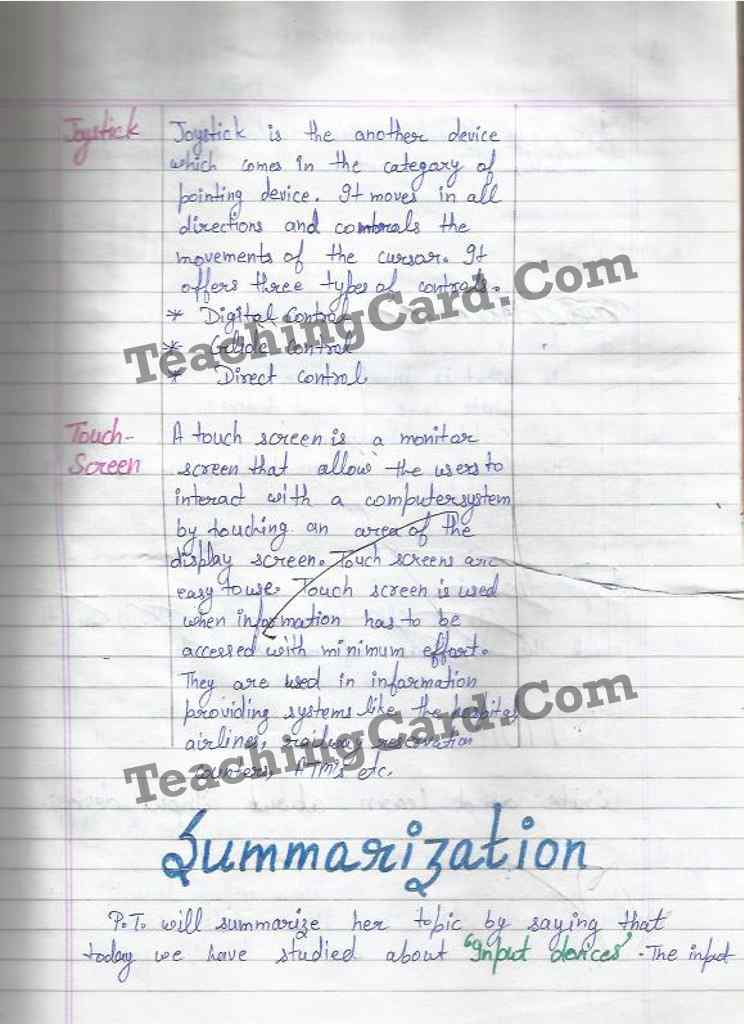 Joystick
Joystick is the another device
which comes in the category of
pointing device. It moves in all
directions and contorals the
movements of the cursor. It
offers three types of controls.
* Digital Control
* Glide control
* Direct control
TeachingCard.Com
Touch-
Screen
A touch screen is a monitor
screen that allow the users to
interact with a computersystem
by touching an area of the
display screen. Touch screens are
easy to use. Touch screen is used
when information has to be
accessed with minimum effort.
They are used in information
providing systems like the hospital
airlines, railway reservation
counters, ATM's etc.
TeachingCard.Com
Summarization
P.T. will summarize her topic by saying that
today we have studied about "Input devices". The input